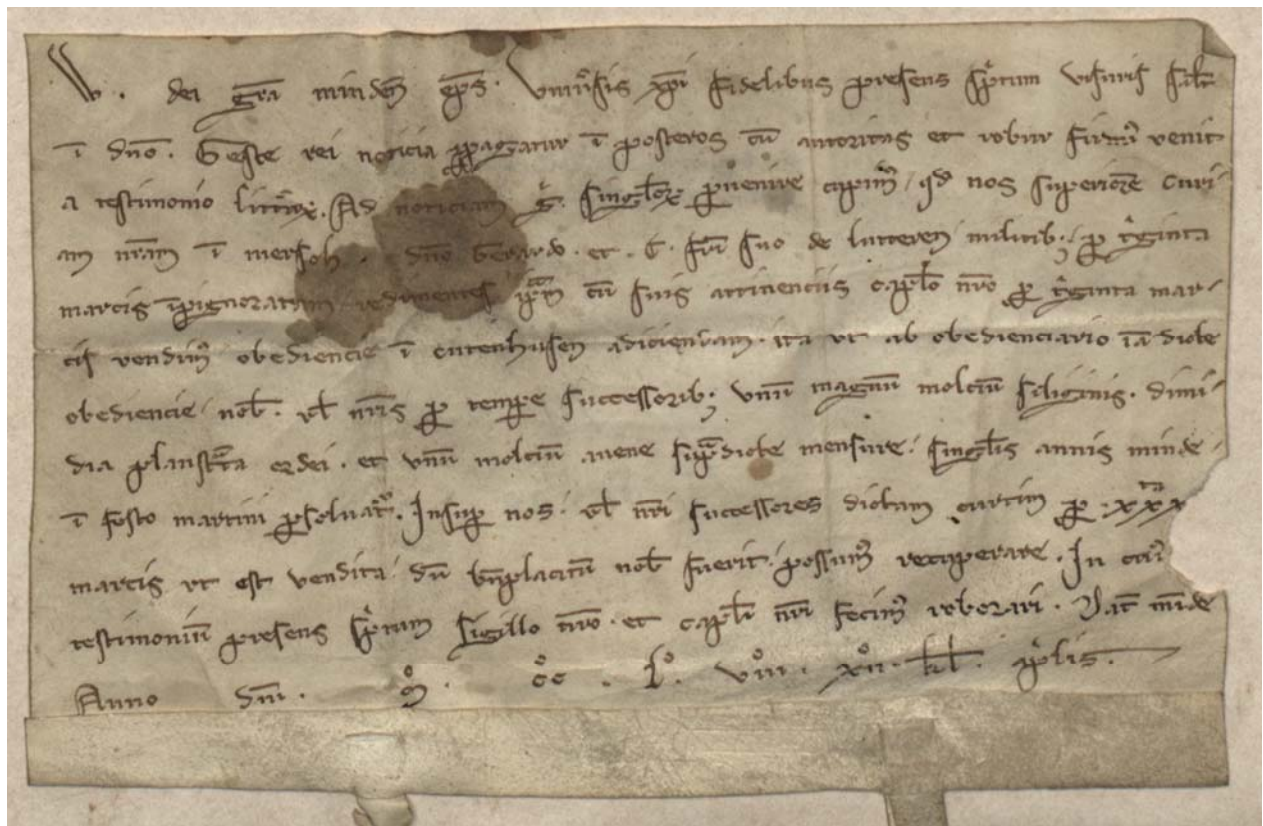 W. dei gr̄a minden̄ ep̄s. Vniũsis xp̄i fidelibus presens sc̾ptum visuris sal̄t
ī dn̄o. Geste rei noticia ꝓpagatur ī posteros cū autoritas et robur firmũ venit
a testimonio litt̾aꝝ. Ad noticiam singl̄oꝝ ꝑuenire cupim᷒ qd nos superiorē curi-
am nr̄am ī mersoh. dn̄o Gerardo. et fr̄i suo de lutteren militib; ꝓ t̾ginta
marcis īpignoratam redimentes ip̄am cū suis attinenciis capl̄o nr̄o ꝓ t̾ginta mar-
cis vendim᷒ obediencie ī enienhusen adiciendam. ita vt ab obedienciario iā dicte
obediencie nob̄. vl̄ nr̄is ꝓ tempe successorib; vnū magnū molciū siliginis. dimi-
dia plaustrata et vnū molciū auene sup̄adicte mensure. singl̄is annis minde
ī festo martini ꝑsoluat᷑. Insuꝑ nos vl̄ nr̄i successores dictam curtim ꝓ .xxx
marcis vt est vendita. dū bn̄placitū nob̄ fuerit. possum᷒ recuperare. In cui᷒
testimoniū presens sc̾ptum sigillo nr̄o. et capl̄i nr̄i fecim᷒ roborari. Dat̄ minde
Anno dn̄i. m̊. cc̊. l̊. viii̊. xii̊. kl̄. ap̾lis.